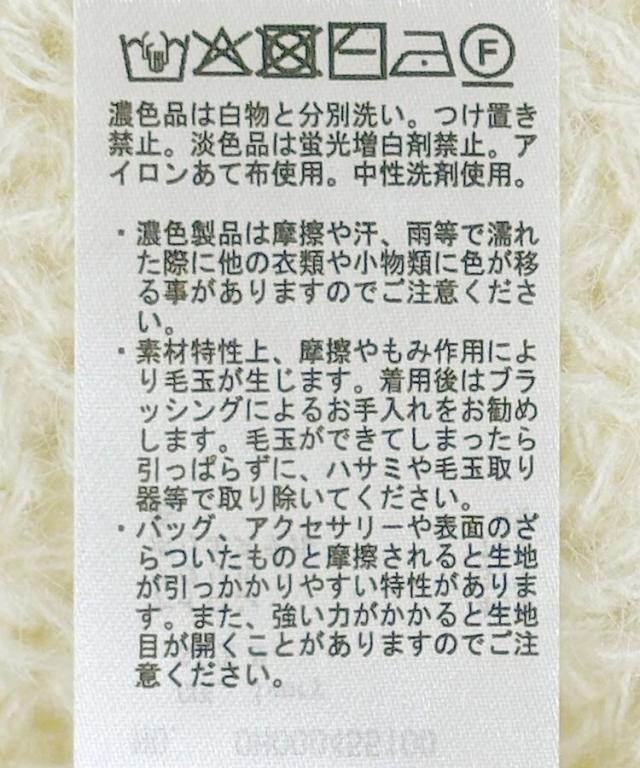 F
濃色品は白物と分別洗い。つけ置き
禁止。淡色品は蛍光増白剤禁止。ア
イロンあて布使用。中性洗剤使用。
・濃色製品は摩擦や汗、雨等で濡れ
た際に他の衣類や小物類に色が移
る事がありますのでご注意くださ
い。
・素材特性上、摩擦やもみ作用によ
り毛玉が生じます。着用後はブラ
ッシングによるお手入れをお勧め
します。毛玉ができてしまったら
引っぱらずに、ハサミや毛玉取り
器等で取り除いてください。
・バッグ、アクセサリーや表面のざ
らついたものと摩擦されると生地
が引っかかりやすい特性がありま
す。また、強い力がかかると生地
目が開くことがありますのでご注
意ください。